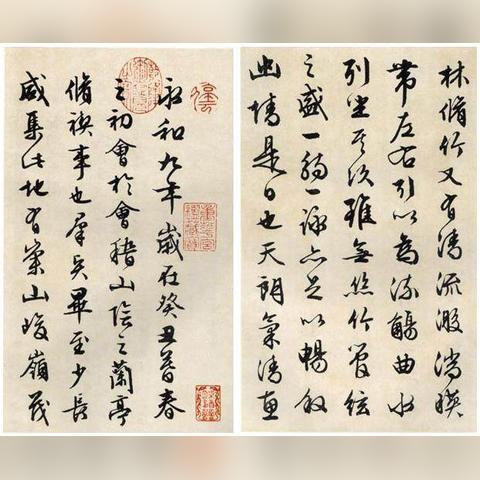 永和九年歲在癸丑暮春
之初會於會稽山陰之蘭亭
脩禊事也羣賢畢至少長
咸集此地有崇山峻嶺茂
林脩竹又有清流激湍暎
帶左右引以為流觴曲水
列坐其次雖無絲竹管絃
之盛一觴一詠亦足以暢敘
幽情是日也天朗氣清惠